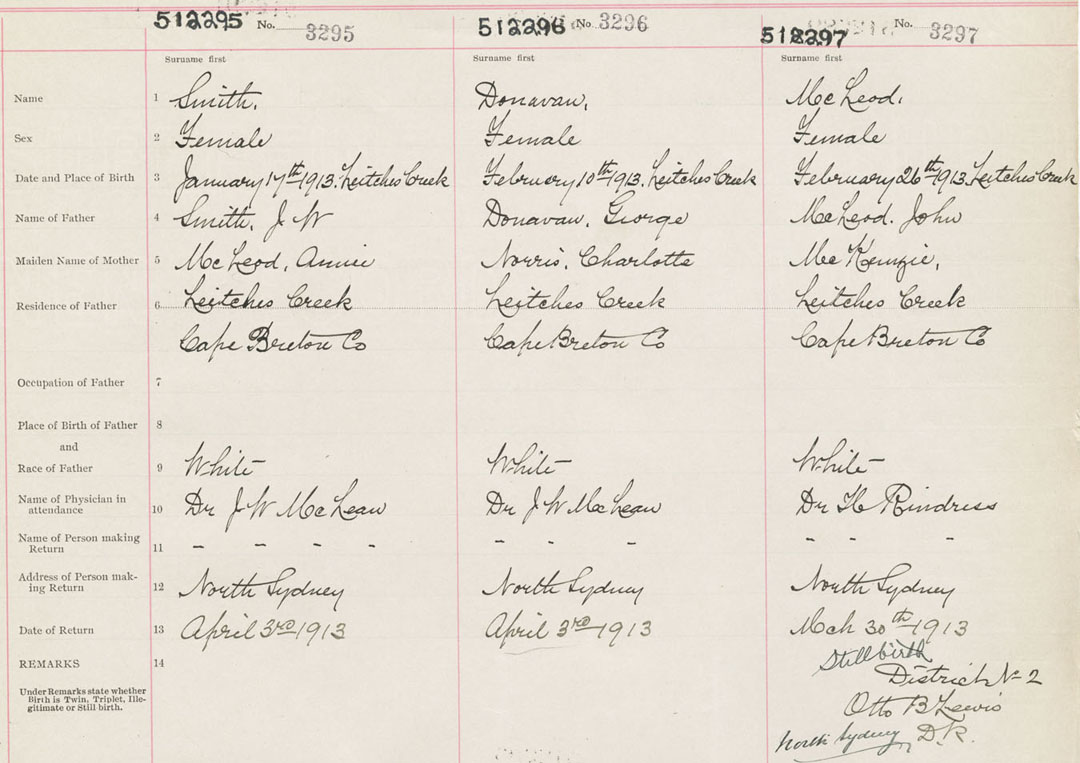 512295 No. 3295 512296 No. 3296 512297 No. 3297
Surname first Surname first Surname first
Name 1 Smith. Donavan. McLeod.
Sex 2 Female Female Female
Date and Place of Birth 3 January 17th 1913. Leitches Creek February 10th 1913. Leitches Creek February 26th 1913 Leitches Creek
Name of Father 4 Smith, J W Donavan, George McLeod. John
Maiden Name of Mother 5 McLeod, Annie Norris, Charlotte McKenzie,
Residence of Father 6 Leitches Creek Leitches Creek Leitches Creek
Cape Breton Co Cape Breton Co Cape Breton Co
Occupation of Father 7
Place of Birth of Father 8
and
Race of Father 9 White White White
Name of Physician in
attendance 10 Dr J W McLean Dr J W McLean Dr H Rindress
Name of Person making
Return 11 - - - - - - - - - -
Address of Person mak-
ing Return 12 North Sydney North Sydney North Sydney
Date of Return 13 April 3rd 1913 April 3rd 1913 Mch 30th 1913
REMARKS 14 Stillbirth
Under Remarks state whether
Birth is Twin, Triplet, Ille-
gitimate or Still birth.
District No 2
Otto B Lewis
North Sydney D.R.